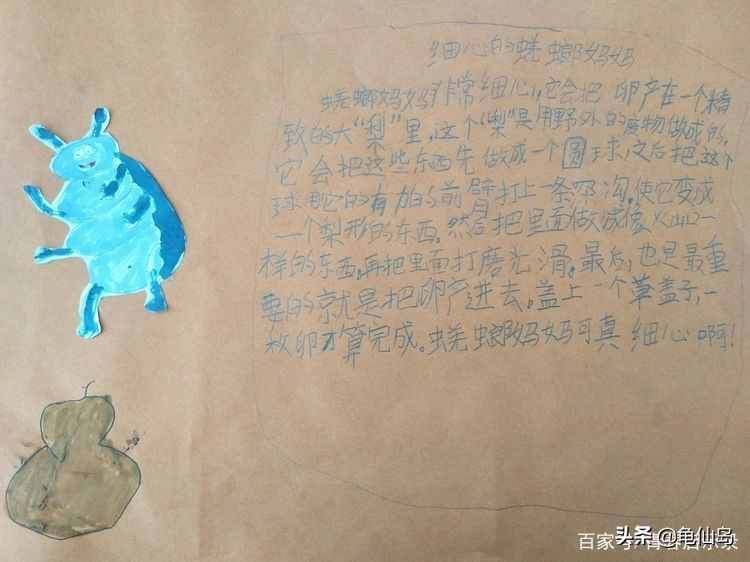 细心的蜣螂妈妈
蜣螂妈妈非常细心，它会把卵产在一个精
致的大“梨”里，这个“梨”是用野外的废物做成的，
它会把这些东西先做成一个圆球，之后把这个
球用它的有力的前臂打上一条凹沟，使它变成
一个梨形的东西，然后把里面做成像火山口一
样的东西，再把里面打磨光滑，最后，也是最重
要的就是把卵产进去。盖上一个草盖子，一
枚卵才算完成。蜣螂妈妈可真细心啊！
头条@龟仙岛
百家号